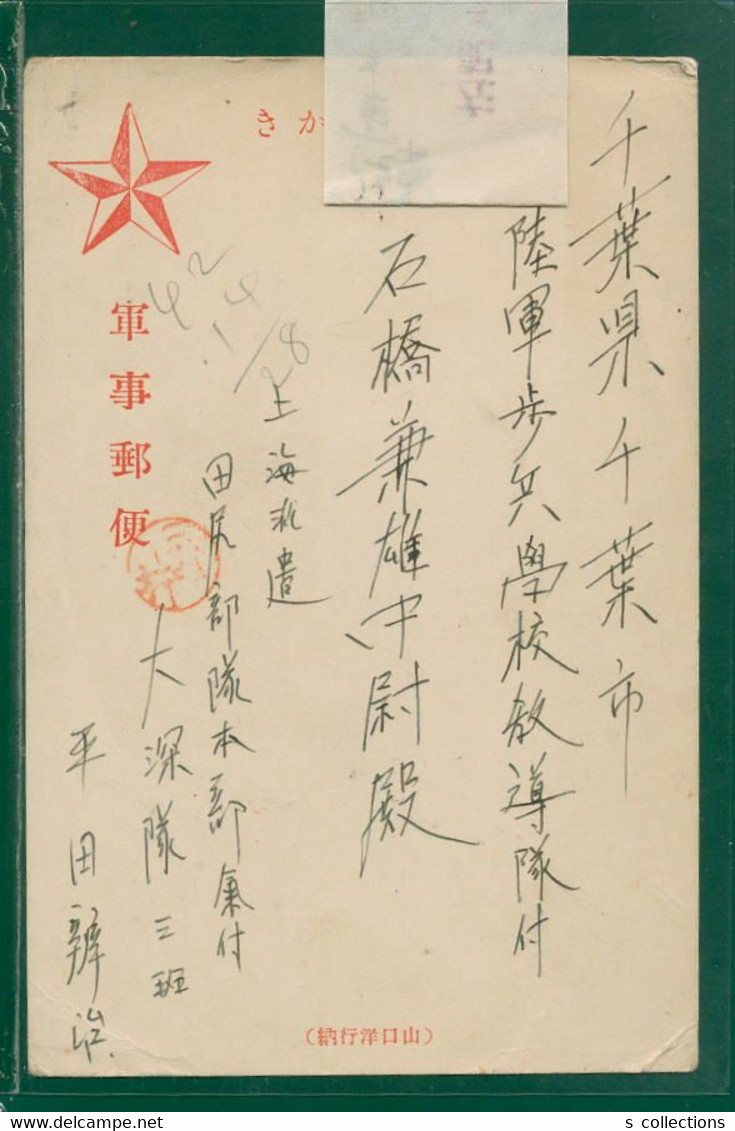 千葉県千葉市
陸軍歩兵學校教導隊付
石橋兼雄中尉殿
きが
上海派遣
田尻部隊本部氣付
大深隊三班
平田辯治
軍事郵便
(山口洋行納)
s collections